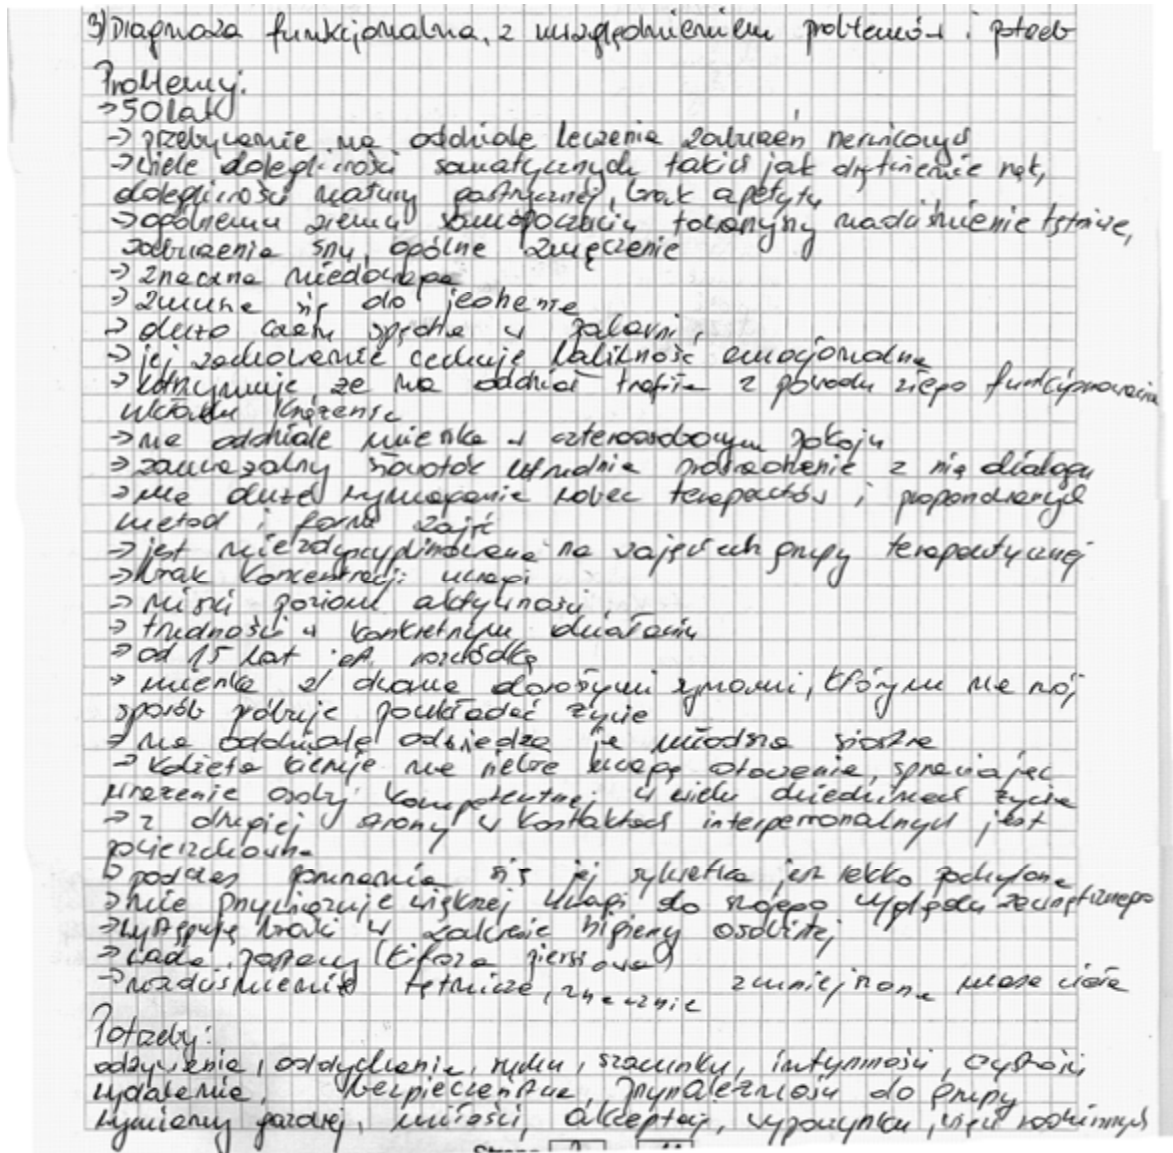 3) Diagnoza funkcjonalna, z uwzględnieniem problemów i potrzeb
Problemy:
→ 50 lat
→ przebywanie na oddziale leczenia zaburzeń nerwicowych
→ wiele dolegliwości somatycznych takich jak drętwienie rąk,
dolegliwości natury gastrycznej, brak apetytu
→ ogólnemu złemu samopoczuciu towarzyszy nadciśnienie tętnicze,
zaburzenia snu, ogólne zmęczenie
→ znaczna niedowaga
→ zmusza się do jedzenia
→ dużo czasu spędza w palarni,
→ jej zachowanie cechuje labilność emocjonalna
→ utrzymuje że na oddział trafiła z powodu złego funkcjonowania
układu krążenia
→ na oddziale mieszka w czteroosobowym pokoju
→ zauważalny słowotok utrudnia prowadzenie z nią dialogu
→ ma duże wymagania wobec terapeutów i proponowanych
metod i form zajęć
→ jest niezdyscyplinowana na zajęciach grupy terapeutycznej
→ brak koncentracji uwagi
→ niski poziom aktywności
→ trudności w konkretnym działaniu
→ od 15 lat jest rozwódką
→ mieszka z dwoma dorosłymi synami, którym na swój
sposób próbuje poukładać życie
→ na oddziale odwiedza ją młodsza siostra
→ kobieta kieruje na siebie uwagę otoczenia, sprawiając
wrażenie osoby kompetentnej w wielu dziedzinach życia
→ z drugiej strony w kontaktach interpersonalnych jest
powierzchowna
→ podczas poruszania się jej sylwetka jest lekko pochylona
→ nie przywiązuje większej uwagi do swojego wyglądu zewnętrznego
→ występują braki w zakresie higieny osobistej
→ wada postawy (kifoza piersiowa)
→ nadciśnienie tętnicze, znacznie zmniejszona masa ciała
Potrzeby:
odżywienia, oddychania, ruchu, szacunku, intymności, czystości
wydalania, bezpieczeństwa, przynależności do grupy
wymiany gazowej, miłości, akceptacji, wypoczynku, więzi rodzinnych